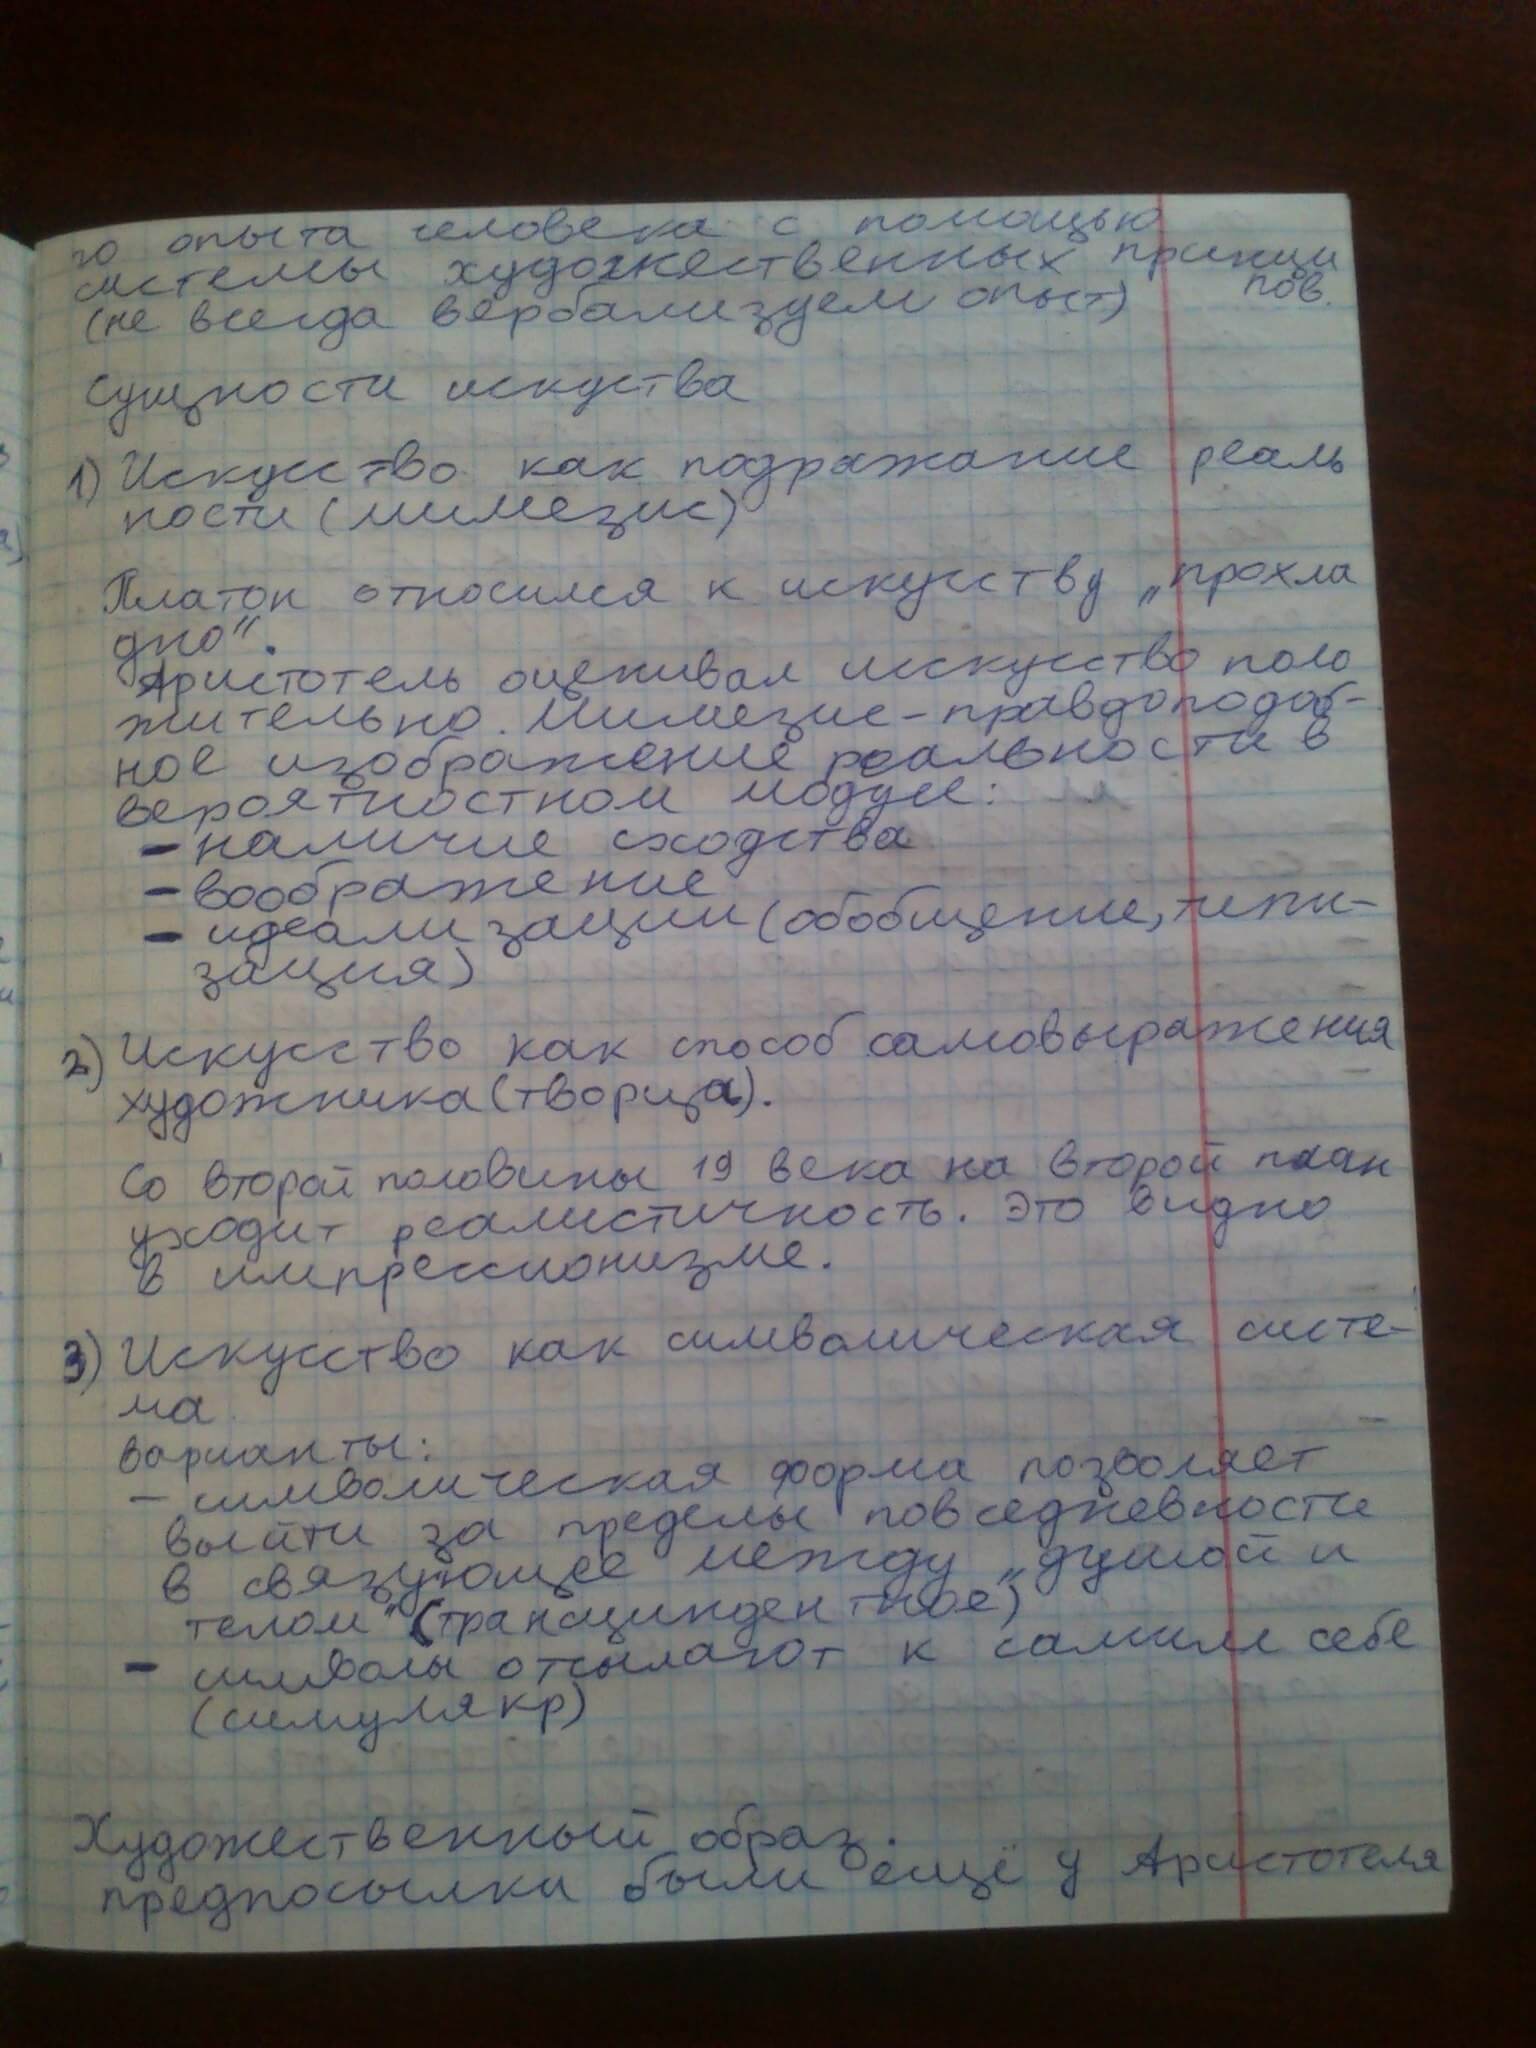 го опыта человека с помощью
системы художественных принци
пов.
(не всегда вербализуем опыт)
Сущности искуства
1) Искусство как подражание реаль
ности (мимезис)
Платон относился к искусству „прохла
дно“.
Аристотель оценивал искусство поло
жительно. Мимезис - правдоподоб-
ное изображение реальности в
вероятностном модусе:
- наличие сходства
- воображение
- идеализации (обобщение, типи-
зация)
2) Искусство как способ самовыражения
художника (творца).
Со второй половины 19 века на второй план
уходит реалистичность. Это видно
в импрессионизме.
3) Искусство как символическая систе-
ма
варианты:
- символическая форма позволяет
выйти за пределы повседневности
в связующее между „душой и
телом“ (трансциндентное)
- символы отсылают к самим себе
(симулякр)
Художественный образ.
предпосылки были ещё у Аристотеля